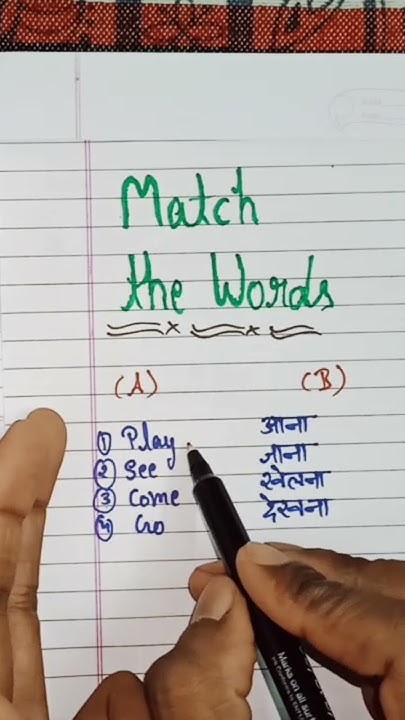 Match
the Words
(A) (B)
① Play आना
② See जाना
③ Come खेलना
④ Go देखना
Marks on all